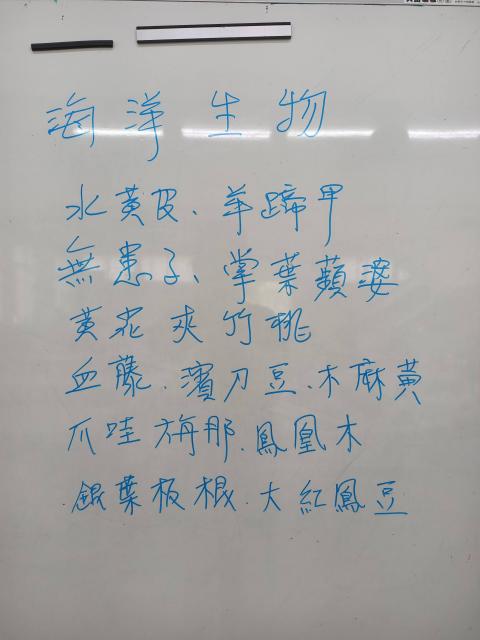 海洋生物
水黃皮、羊蹄甲
無患子、掌葉蘋婆
黃花夾竹桃
血藤.濱刀豆.木麻黃
爪哇旃那.鳳凰木
銀葉板根.大紅鳳豆